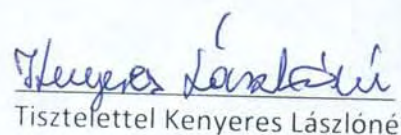 Kenyeres Lászlóné
Tisztelettel Kenyeres Lászlóné